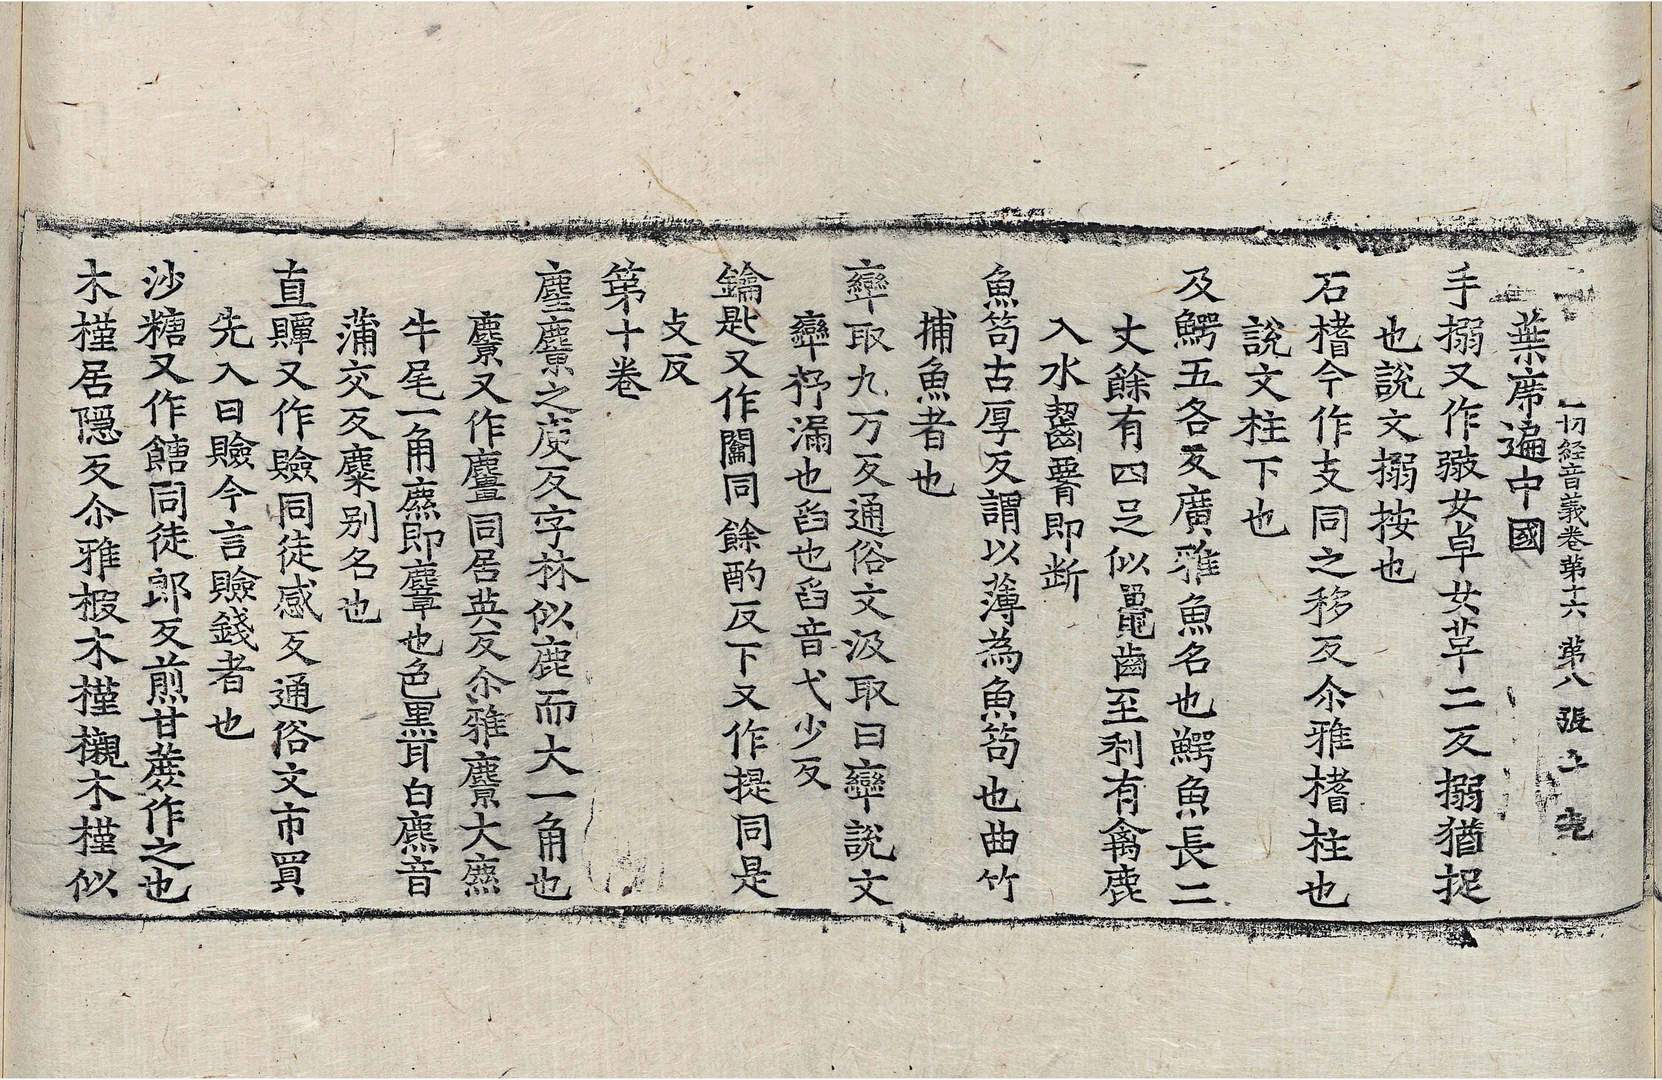 一切経音義卷第十六 第八張
葉席遍中國
手搦又作㩴女卓女革二反搦猶捉
也說文搦按也
石榰今作支同之移反尒雅榰柱也
說文柱下也
及鰐五各反廣雅魚名也鰐魚長二
丈餘有四足似鼉齒至利有禽鹿
入水齧䐡即断
魚笱古厚反謂以薄為魚笱也曲竹
捕魚者也
𤼙取九万反通俗文汲取曰𤼙說文
𤼙杼漏也舀也舀音弋少反
鑰匙又作闟同餘酌反下又作提同是
攴反
第十卷
麈麖之庾反字林似鹿而大一角也
麖又作麠同居英反尒雅麖大麃
牛尾一角麃即麞也色黒耳白麃音
蒲交反麋别名也
直贉又作賺同徒感反通俗文市買
先入曰賺今言賺錢者也
沙糖又作餹同徒郎反煎甘蔗作之也
木槿居隱反尒雅椴木槿櫬木槿似